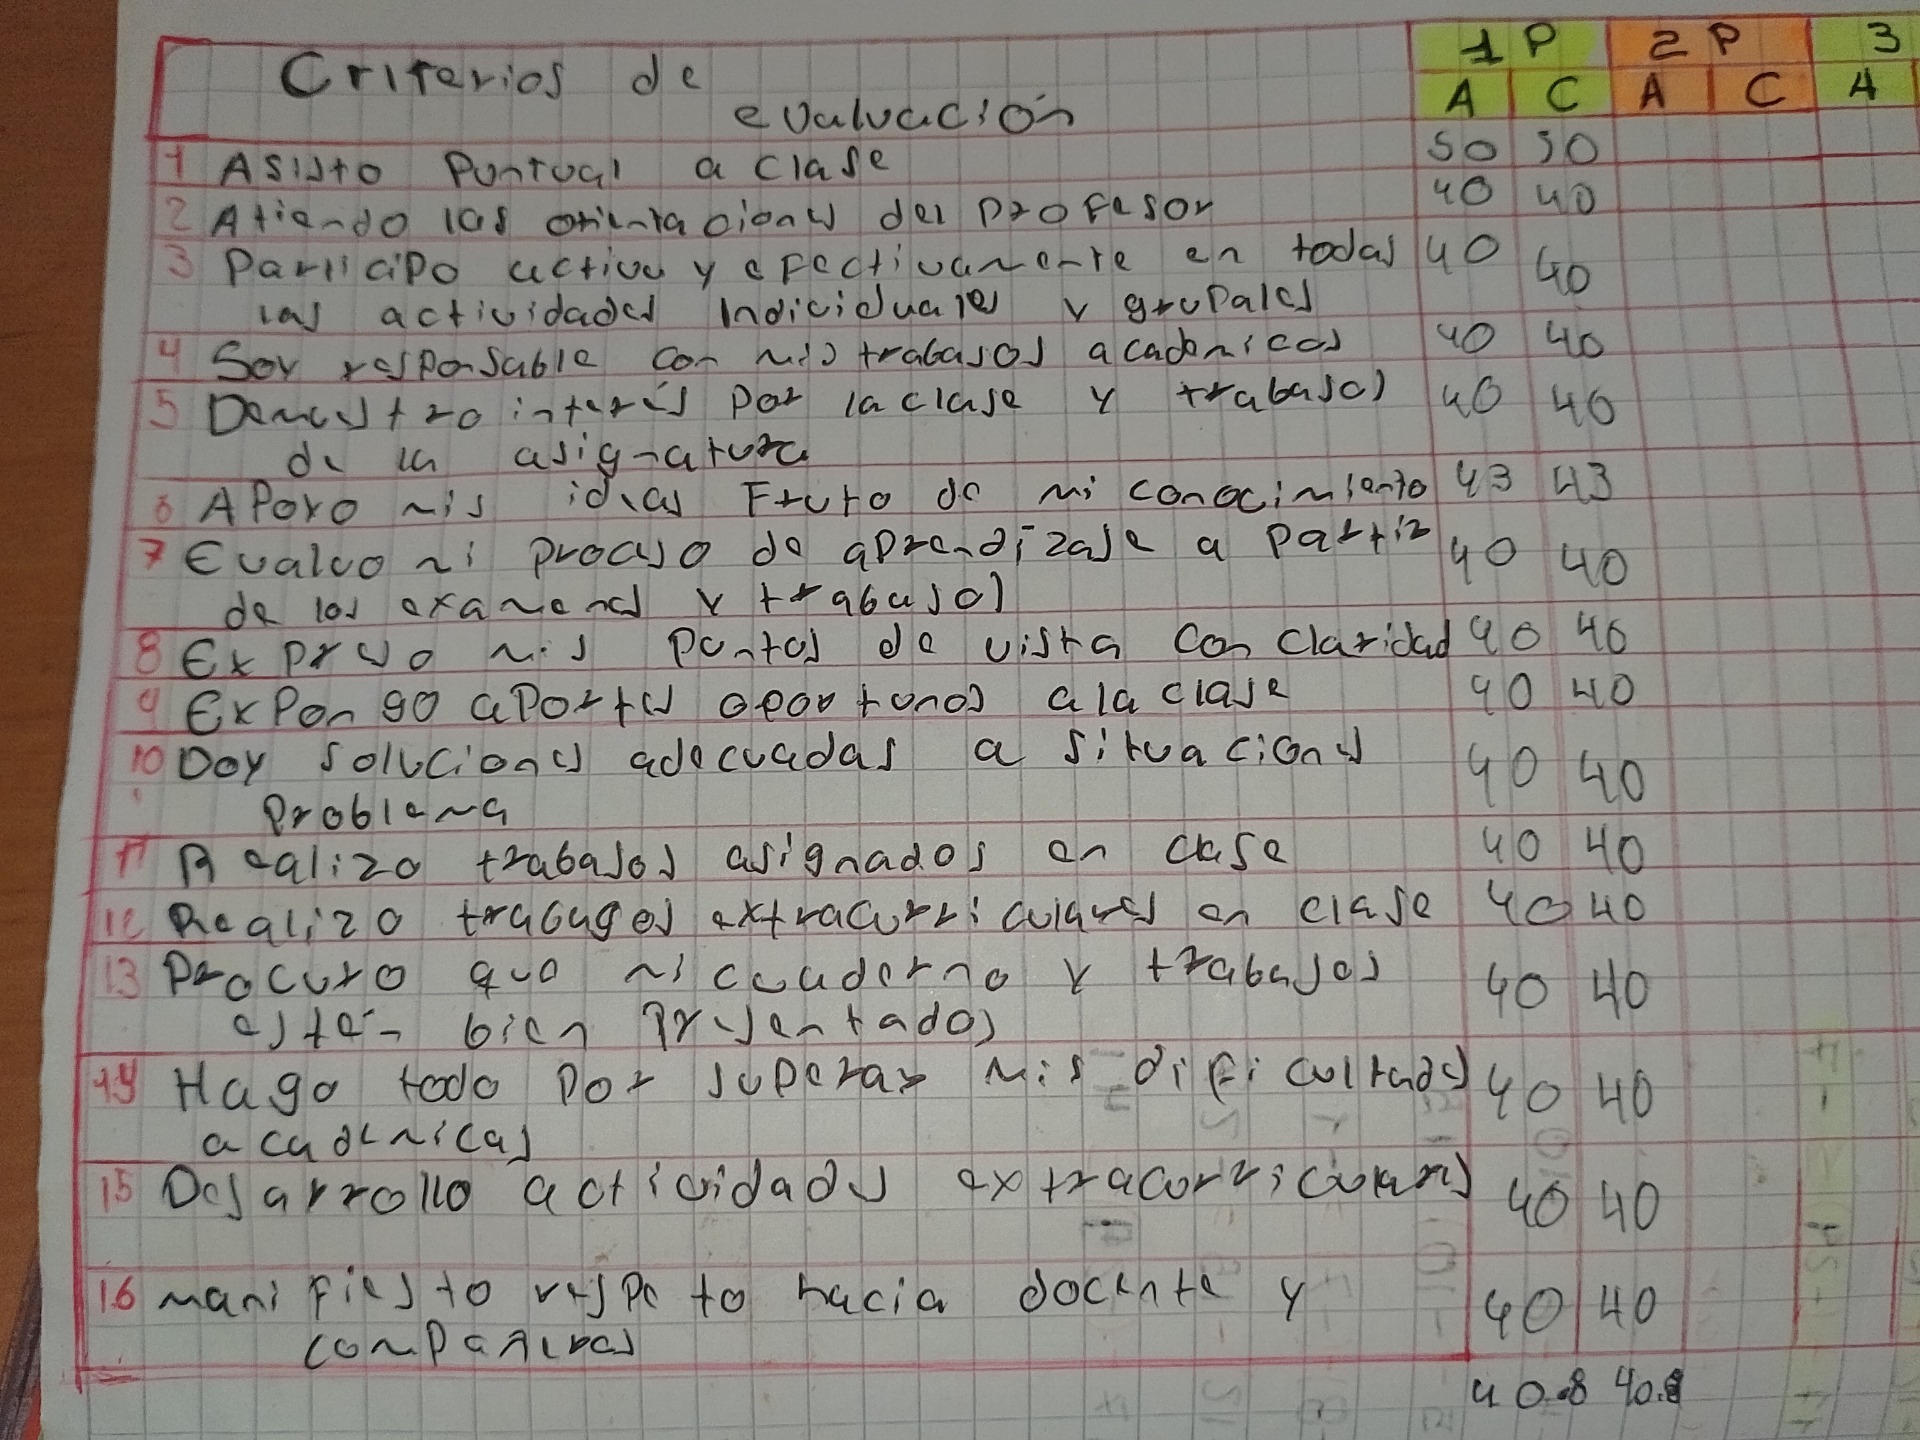 Criterios de
evaluación
1 P 2 P 3
A C A C A
1 Asisto Puntual a clase 50 50
2 Atiendo las orientaciones del Profesor 40 40
3 Participo activa y efectivamente en todas 40 40
las actividades Individuales y grupales
4 Soy responsable con mis trabajos academicos 40 40
5 Demuestro interés por la clase y trabajos 40 40
de la asignatura
6 Aporo mis ideas Fruto de mi conocimiento 43 43
7 Evaluo mi proceso de aprendizaje a partir 40 40
de los examenes y trabajos
8 Expreso mis puntos de vista con claridad 40 40
9 Expongo aportes oportunos a la clase 40 40
10 Doy soluciones adecuadas a situaciones 40 40
Problema
11 Realizo trabajos asignados en clase 40 40
12 Realizo trabagos extracurriculares en clase 40 40
13 Procuro que mi cuaderno y trabajos 40 40
estén bien Presentados
14 Hago todo por superar mis dificultades 40 40
academicas
15 Desarrollo actividades extracurriculares 40 40
16 manifiesto respeto hacia docente y 40 40
compañeros
40.8 40.8